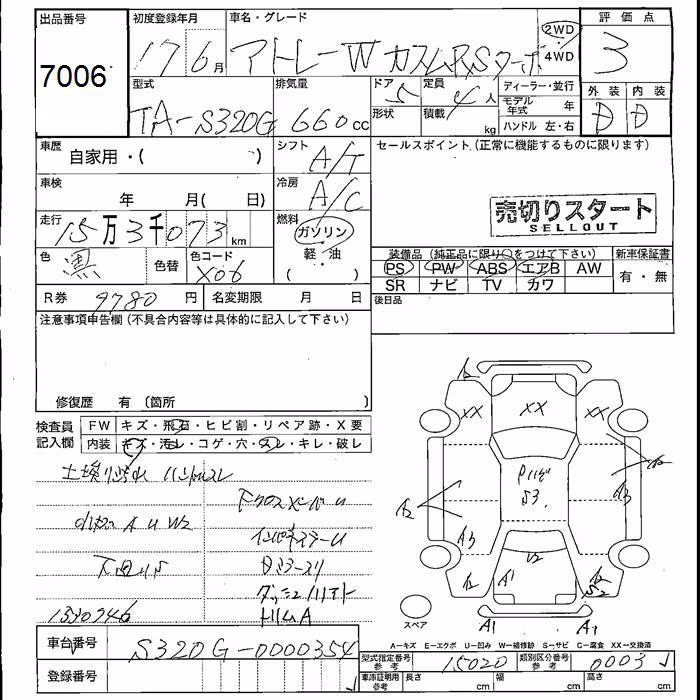 出品番号 初度登録年月 車名・グレード 2WD 評価点
7006 17 6月 アトレーW カスタムRSターボ 4WD 3
型式 排気量 ドア 定員 ディーラー・並行 外装 内装
TA-S320G 660cc 5 4人 モデル年式 年 D D
形状 積載 kg ハンドル 左・右
車歴 シフト セールスポイント(正常に機能するものに限ります)
自家用・( ) A/T
車検 冷房
年 月( 日) A/C 売切りスタート
走行 燃料 SELLOUT
15万3千073km ガソリン
色 色替 色コード 軽・油 装備品(純正品に限り○をつけて下さい) 新車保証書
黒 X06 ( ) PS PW ABS エアB AW 有・無
R券 9780円 名変期限 月 日 SR ナビ TV カワ
後日品
注意事項申告欄(不具合内容等は具体的に記入して下さい)
修復歴 有 (箇所 )
検査員 FW キズ・飛石・ヒビ割・リペア跡・X要
記入欄 内装 キズ・汚レ・コゲ・穴・スレ・キレ・破レ
ハンドルスレ
A U W2
下回りサ
XX XX XX
A2
A3
A3
S3
A1
スペア A1 A1
A=キズ E=エクボ U=凹み W=補修跡 S=サビ C=腐食 XX=交換済
車台番号 S320G-0000354
型式指定番号 参考 15020 類別区分番号 参考 0003
登録番号 車庫証明用 参考 長さ cm 幅 cm 高さ cm